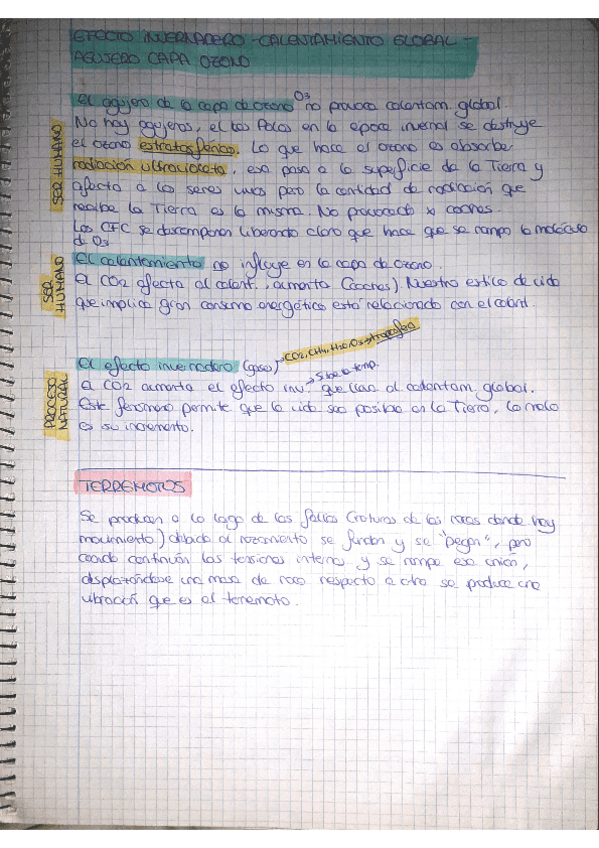 EFECTO INVERNADERO - CALENTAMIENTO GLOBAL -
AGUJERO CAPA OZONO
El agujero de la capa de ozono O3 no provoca calentam. global.
No hay agujeros, el los Polos en la época invernal se destruye
el ozono estratosférico. Lo que hace el ozono es absorber
radiación ultravioleta, esa pasa a la superficie de la Tierra y
afecta a los seres vivos pero la cantidad de radiación que
recibe la Tierra es la misma. No provocado x coches.
Los CFC se descomponen liberando cloro que hace que se rompa la molécula
d O3
SER HUMANO
El calentamiento no influye en la capa de ozono.
El CO2 afecta al calent., aumenta (coches). Nuestro estilo de vida
que implica gran consumo energético está relacionado con el calent.
SER HUMANO
El efecto invernadero (gases) → CO2, CH4, H2O, O3 → troposfera
→ Sube a temp.
El CO2 aumenta el efecto inv. que lleva al calentam. global.
Este fenómeno permite que la vida sea posible en la Tierra, lo malo
es su incremento.
PROCESO NATURAL
TERREMOTOS
Se producen a lo lago de las fallas (roturas de las rocas donde hay
movimiento) debido al rozamiento se funden y se "pegan", pero
cuando continúan las tensiones internas y se rompe esa unión,
desplazándose una masa de roca respecto a otra se produce una
vibración que es el terremoto.